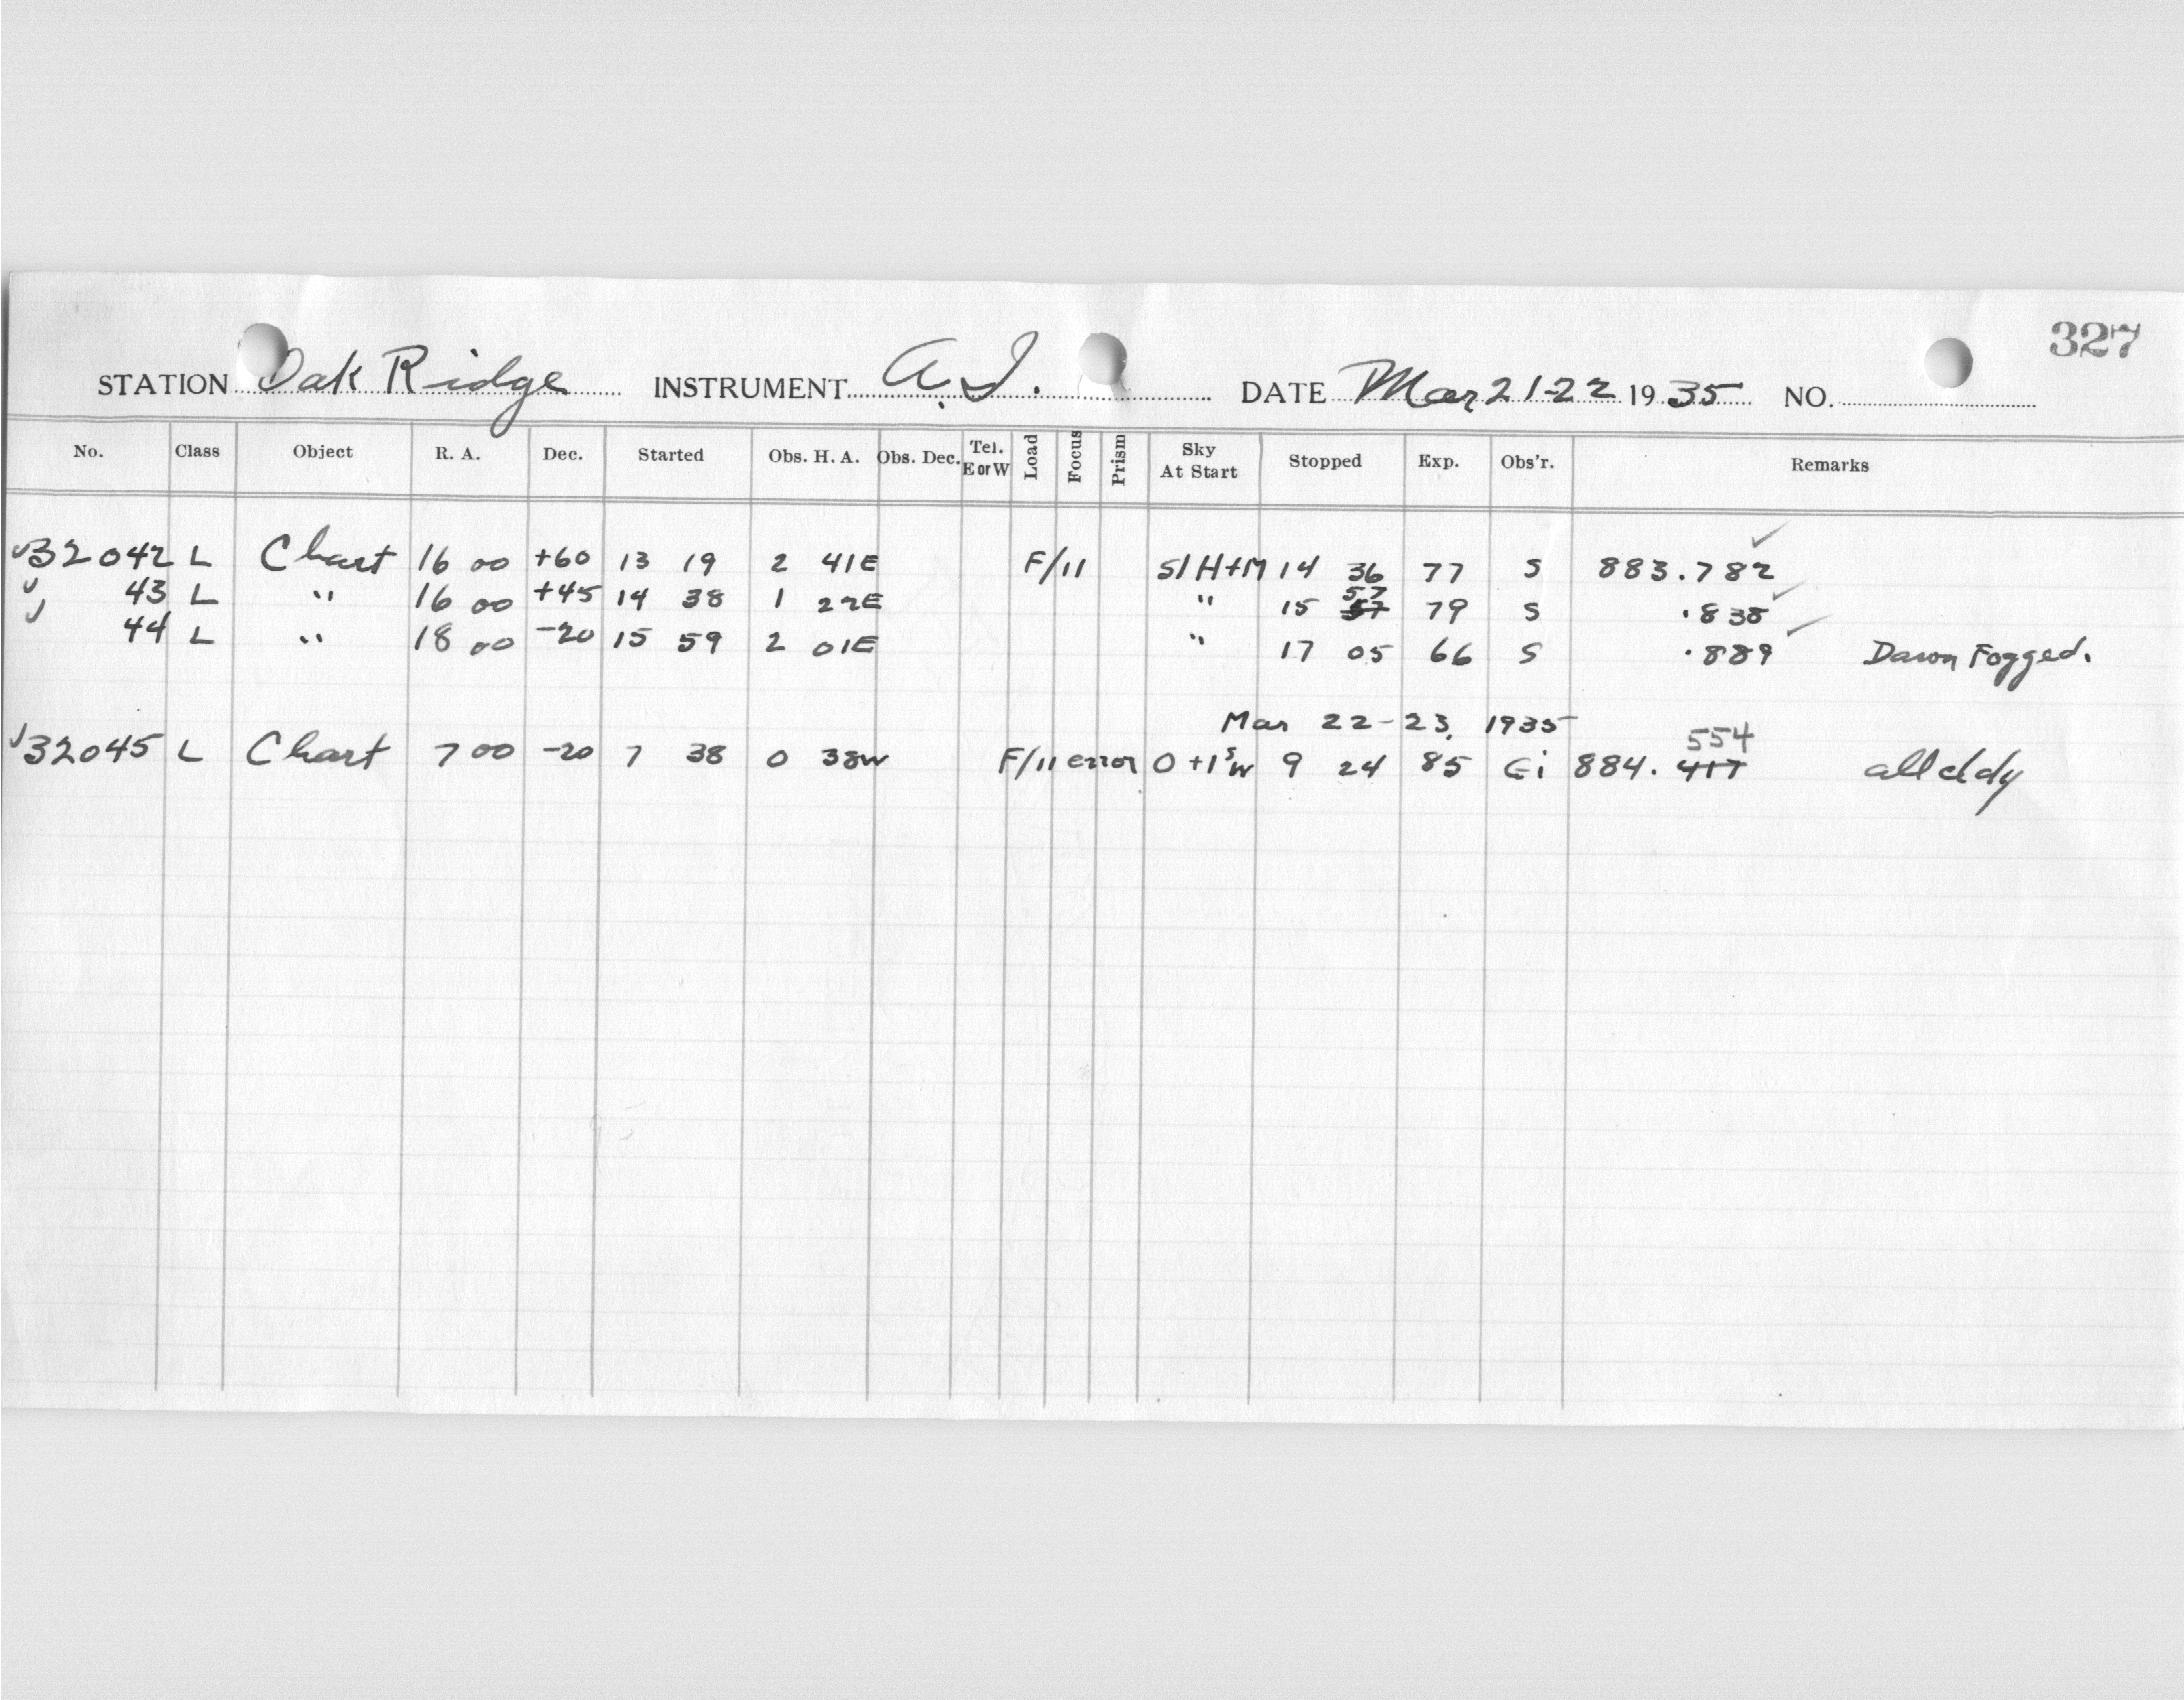 327
STATION Oak Ridge INSTRUMENT A.I. DATE Mar 21-22 1935 NO.
No. Class Object R. A. Dec. Started Obs. H. A. Obs. Dec. Tel. E or W Load Focus Prism Sky At Start Stopped Exp. Obs'r. Remarks
32042 L Chart 16 00 +60 13 19 2 41E F/11 S1H+M 14 36 77 S 883.782
43 L " 16 00 +45 14 38 1 22E " 15 57 57 79 S .838
44 L " 18 00 -20 15 59 2 01E " 17 05 66 S .889 Dawn Fogged.
Mar 22-23, 1935
32045 L Chart 7 00 -20 7 38 0 38W F/11 error 0+1SW 9 24 85 Gi 884. 417 554 all cldy